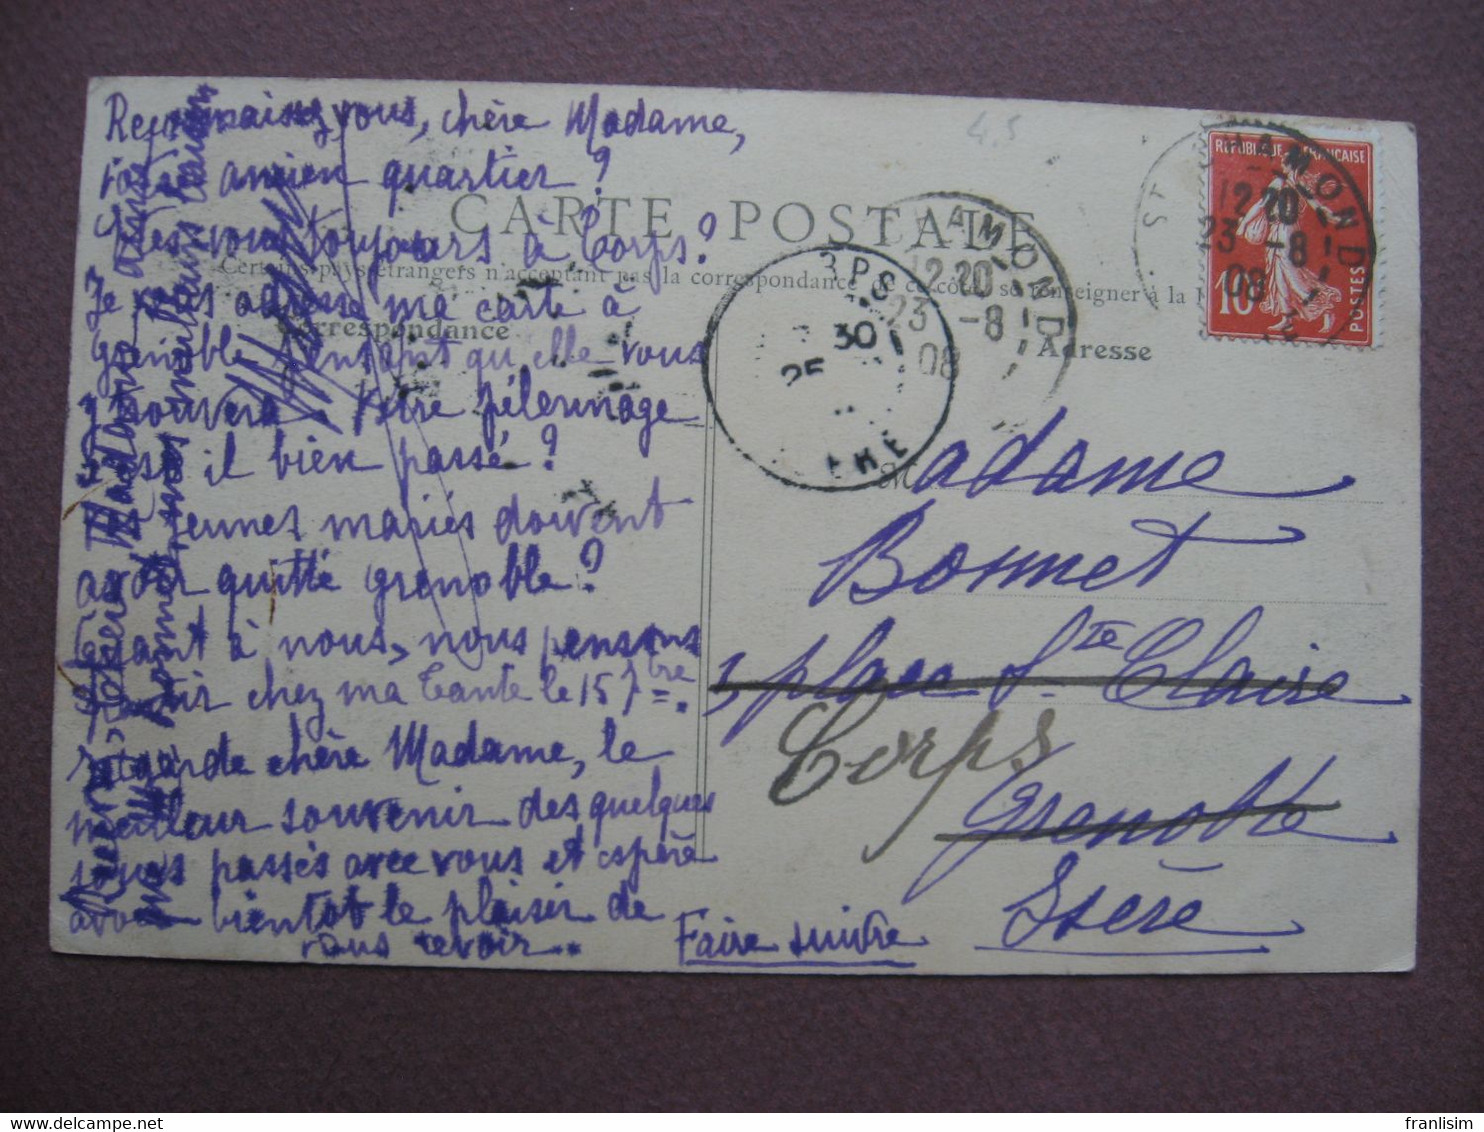 Reconnaissez vous, chère Madame,
votre ancien quartier?
Êtes vous toujours à Corps?
Je vous adresse ma carte à
Grenoble pensant qu'elle vous
trouvera. Votre pélerinage
s'est il bien passé?
Les jeunes mariés doivent
avoir quitté Grenoble?
Quant à nous, nous pensons
partir chez ma tante le 15 7bre.
Je garde chère Madame, le
meilleur souvenir des quelques
jours passés avec vous et espère
avoir bientôt le plaisir de
vous revoir..
Recevez, chère Madame
Bonnet, nos meilleurs baisers
CARTE POSTALE
Certains pays étrangers n'acceptent pas la correspondance de ce côté se renseigner à la
Correspondance
Adresse
4,5
ST CHAMOND
12 20
23 -8
08
REPUBLIQUE FRANÇAISE
10
POSTES
CHAMOND
12 20
23 -8
08
CORPS
30
25
ISERE
Madame
Bonnet
3, place Ste Claire
Corps
Grenoble
Isère
Faire suivre
www.delcampe.net
franlisim